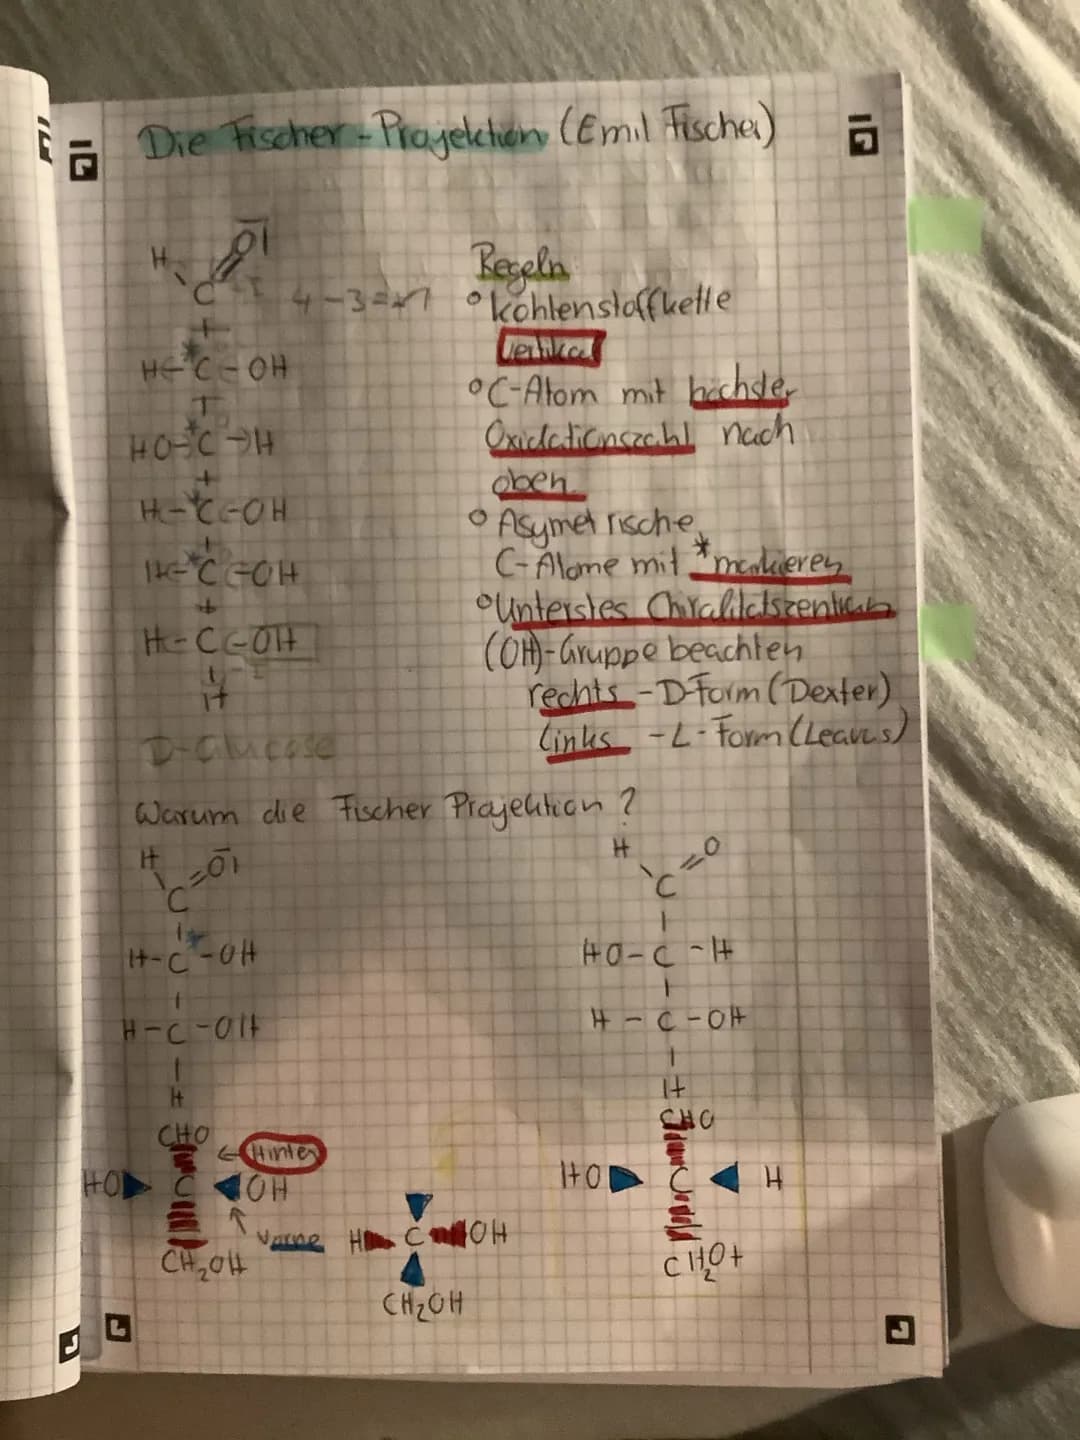 Die Fischer-Projektion (Emil Fischer)
H
C
4-3=
H-C*-OH
HO-C*-H
H-C*-OH
H-C*-OH
H-C-OH
H
D-Glucose
Regeln
° Kohlenstoffkette
vertikal
° C-Atom mit höchster
Oxidationszahl nach
oben.
° Asymetrische
C-Atome mit * markieren
° Unterstes Chiralitätszentrum
(OH)-Gruppe beachten
rechts - D-Form (Dexter)
links - L-Form (Leavus)
Warum die Fischer Projektion?
H
O
C
H-C*-OH
H-C-OH
H
H
O
C
HO-C-H
H-C-OH
H
CHO
← Hinten
HO C OH
Vorne
CH2OH
H C OH
CH2OH
CHO
HO C H
CH2OH